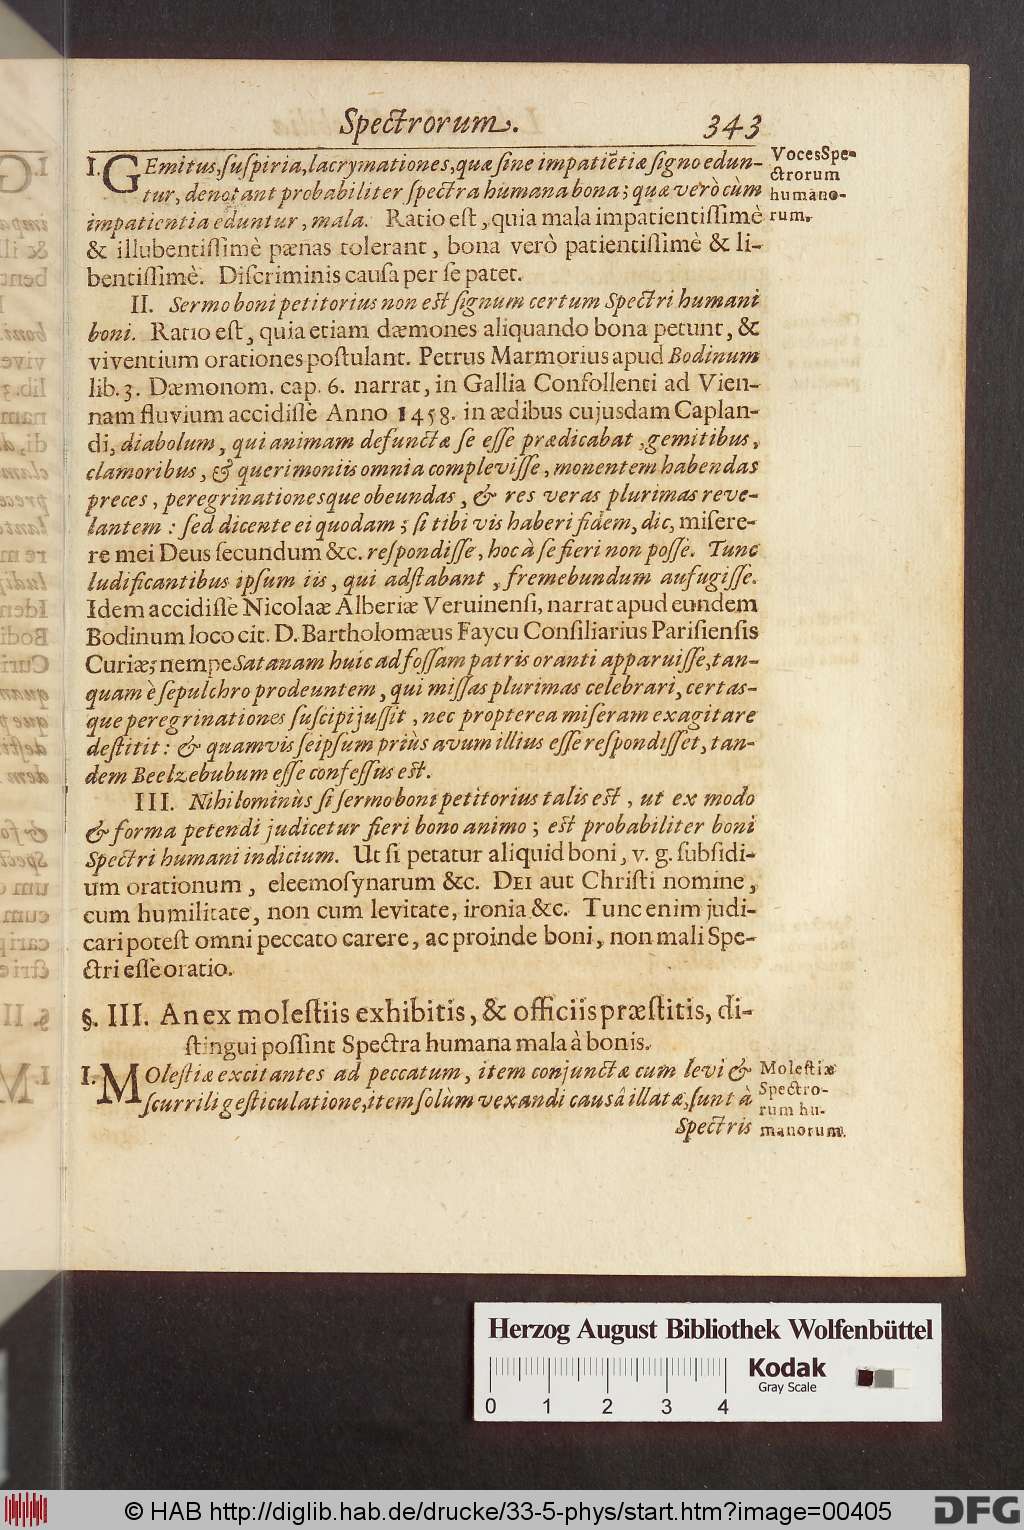 Spectrorum. 343
I. GEmitus, suspiria, lacrymationes, quæ sine impatiẽtiæ signo edun-
tur, denotant probabiliter spectra humana bona; quæ verò cùm
impatientia eduntur, mala. Ratio est, quia mala impatientissimè
& illubentissimè pænas tolerant, bona verò patientissimè & li-
bentissimè. Discriminis causa per se patet.
VocesSpe-
ctrorum
humano-
rum.
II. Sermo boni petitorius non est signum certum Spectri humani
boni. Ratio est, quia etiam dæmones aliquando bona petunt, &
viventium orationes postulant. Petrus Marmorius apud Bodinum
lib. 3. Dæmonom. cap. 6. narrat, in Gallia Confollenti ad Vien-
nam fluvium accidisse Anno 1458. in ædibus cujusdam Caplan-
di, diabolum, qui animam defunctæ se esse prædicabat, gemitibus,
clamoribus, & querimoniis omnia complevisse, monentem habendas
preces, peregrinationesque obeundas, & res veras plurimas reve-
lantem: sed dicente ei quodam; si tibi vis haberi fidem, dic, misere-
re mei Deus secundum &c. respondisse, hoc à se fieri non posse. Tunc
ludificantibus ipsum iis, qui adstabant, fremebundum aufugisse.
Idem accidisse Nicolaæ Alberiæ Veruinensi, narrat apud eundem
Bodinum loco cit. D. Bartholomæus Faycu Consiliarius Parisiensis
Curiæ; nempe Satanam huic ad fossam patris oranti apparuisse, tan-
quam è sepulchro prodeuntem, qui missas plurimas celebrari, certas-
que peregrinationes suscipi jussit, nec propterea miseram exagitare
destitit: & quamvis seipsum priùs avum illius esse respondisset, tan-
dem Beelzebubum esse confessus est.
III. Nihilominùs si sermo boni petitorius talis est, ut ex modo
& forma petendi judicetur fieri bono animo; est probabiliter boni
Spectri humani indicium. Ut si petatur aliquid boni, v. g. subsidi-
um orationum, eleemosynarum &c. DEI aut Christi nomine,
cum humilitate, non cum levitate, ironia &c. Tunc enim judi-
cari potest omni peccato carere, ac proinde boni, non mali Spe-
ctri esse oratio.
§. III. An ex molestiis exhibitis, & officiis præstitis, di-
stingui possint Spectra humana mala à bonis.
I. MOlestiæ excitantes ad peccatum, item conjunctæ cum levi &
scurrili gesticulatione, item solùm vexandi causâ illatæ, sunt à
Spectris
Molestiæ
Spectro-
rum hu-
manorum.
Herzog August Bibliothek Wolfenbüttel
0 1 2 3 4
Kodak
Gray Scale
© HAB http://diglib.hab.de/drucke/33-5-phys/start.htm?image=00405
DFG